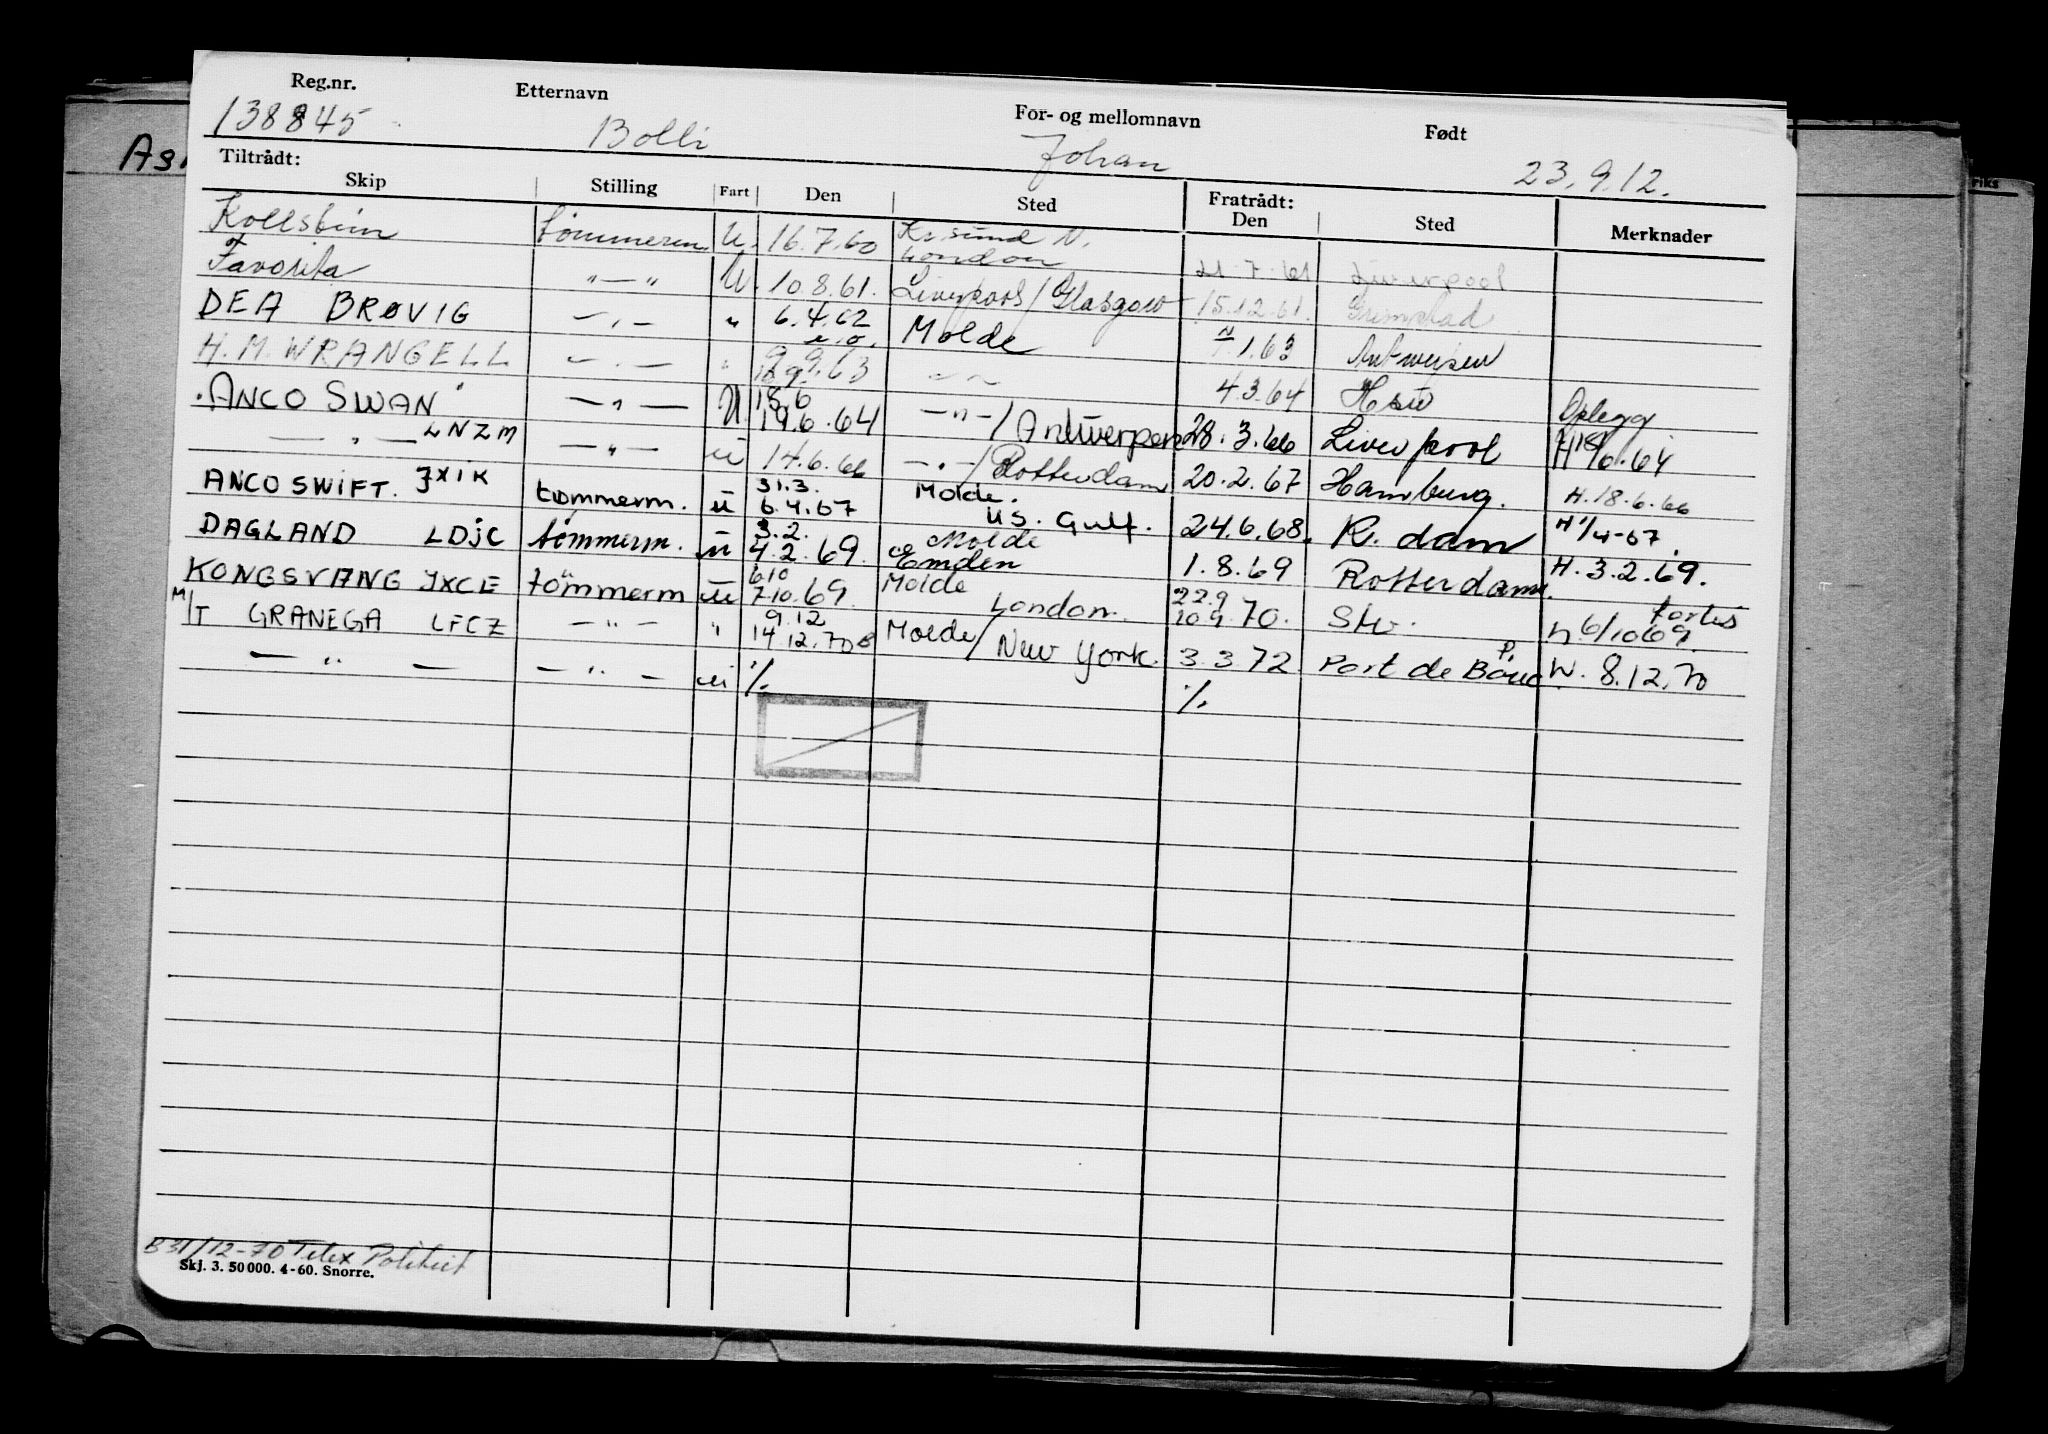 Reg.nr. Etternavn For- og mellomnavn Født
138845 Bolli Johan 23.9.12.
Tiltrådt: Fratrådt:
Skip Stilling Fart Den Sted Den Sted Merknader
Kr.sund N.
Tømmerm. U. 16.7.60 London 21.7.61 Liverpool
Favorita -"- U. 10.8.61. Liverpool/Glasgow 15.12.61. Grimstad
DEA BRØVIG -"- " 6.4.62 Molde 1.63 Antwerpen
H. M. WRANGELL -"- " 9.63 -"- 4.3.64 Opplegg
18.6
"ANCO SWAN" -"- U 19.6.64 -"-/Antwerpen 28.3.66 Liverpool H 18/6.64
-"- LNZM -"- u 14.6.66 -"-/Rotterdam 20.2.67 Hamburg. H. 18.6.66
31.3. Molde.
ANCO SWIFT. JXIK tømmerm. u 6.4.67 US. Gulf. 24.6.68. R. dam H 1/4-67
3.2. Molde
DAGLAND LDJC tømmerm. u 4.2.69. Emden 1.8.69 Rotterdam. H. 3.2.69.
6.10 Molde 22.9
KONGSVANG JXCE tømmerm u 7.10.69 London. 20.9.70. Stv. h 6/10 69.
9.12
M/T GRANEGA LFCZ -"- " 14.12.70 Molde/New York. 3.3.72 Port de Bouc. W. 8.12.70
-"- -"- u % %
B 31/12-70 Telex Politiet
Skj. 3. 50 000. 4-60. Snorre.